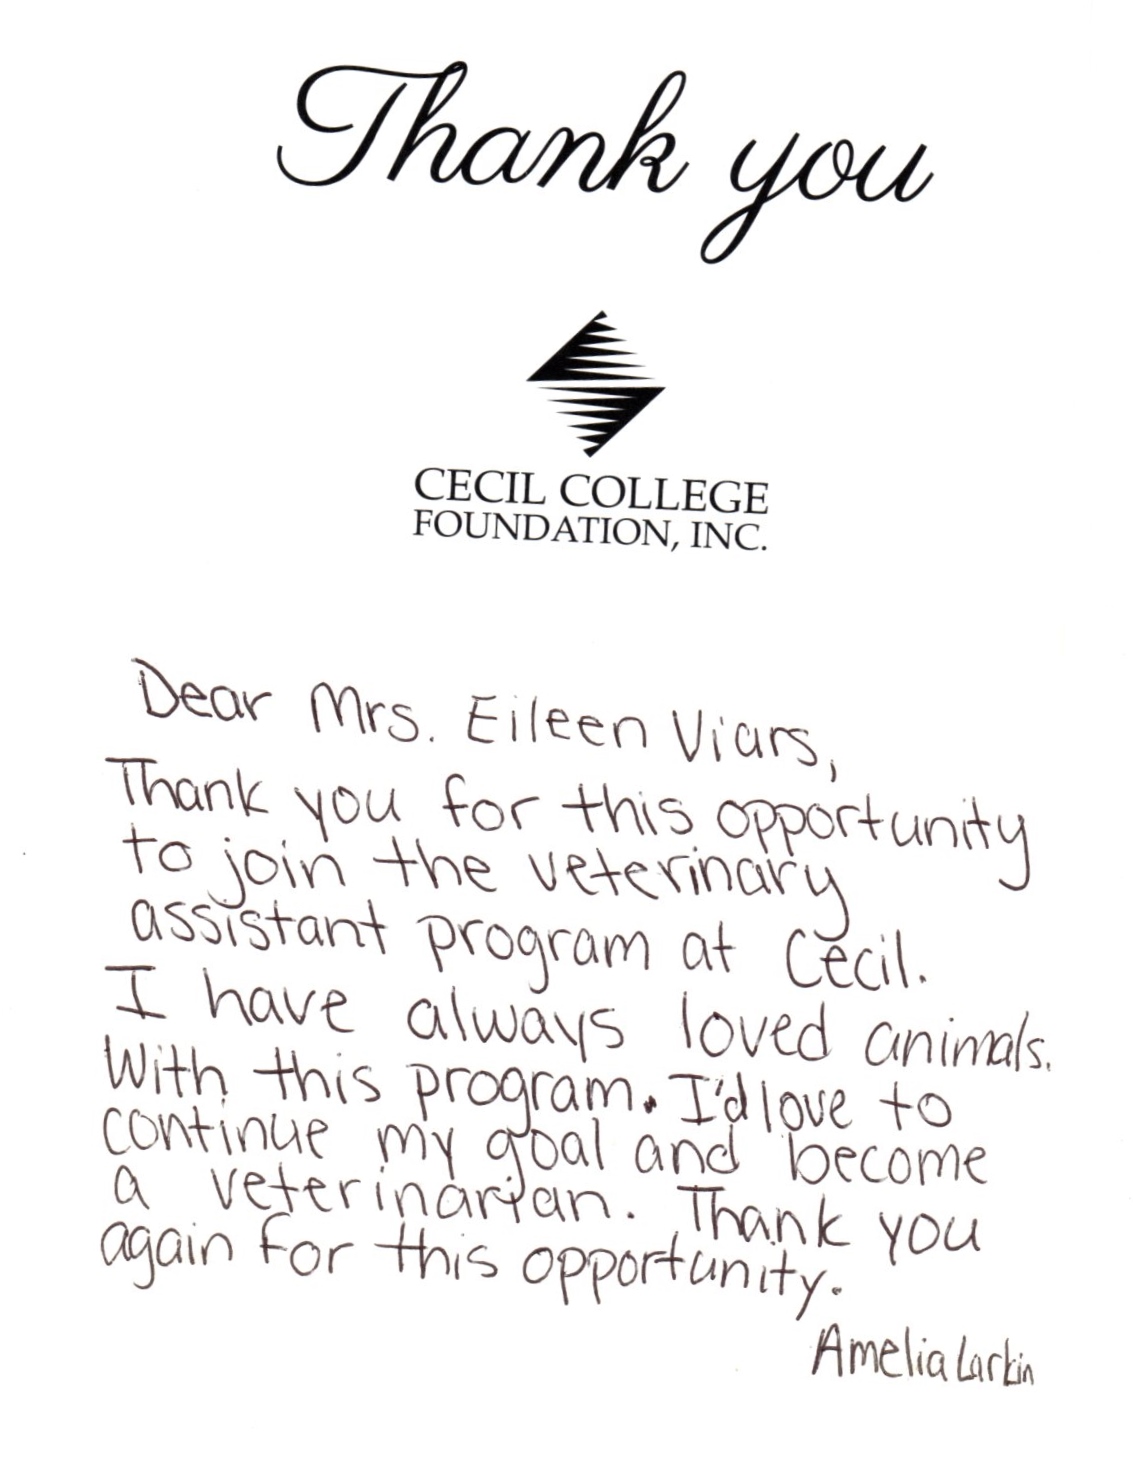 Thank you
CECIL COLLEGE
FOUNDATION, INC.
Dear Mrs. Eileen Viars,
Thank you for this opportunity
to join the veterinary
assistant program at Cecil.
I have always loved animals.
With this program. I'd love to
continue my goal and become
a veterinarian. Thank you
again for this opportunity.
Amelia Larkin